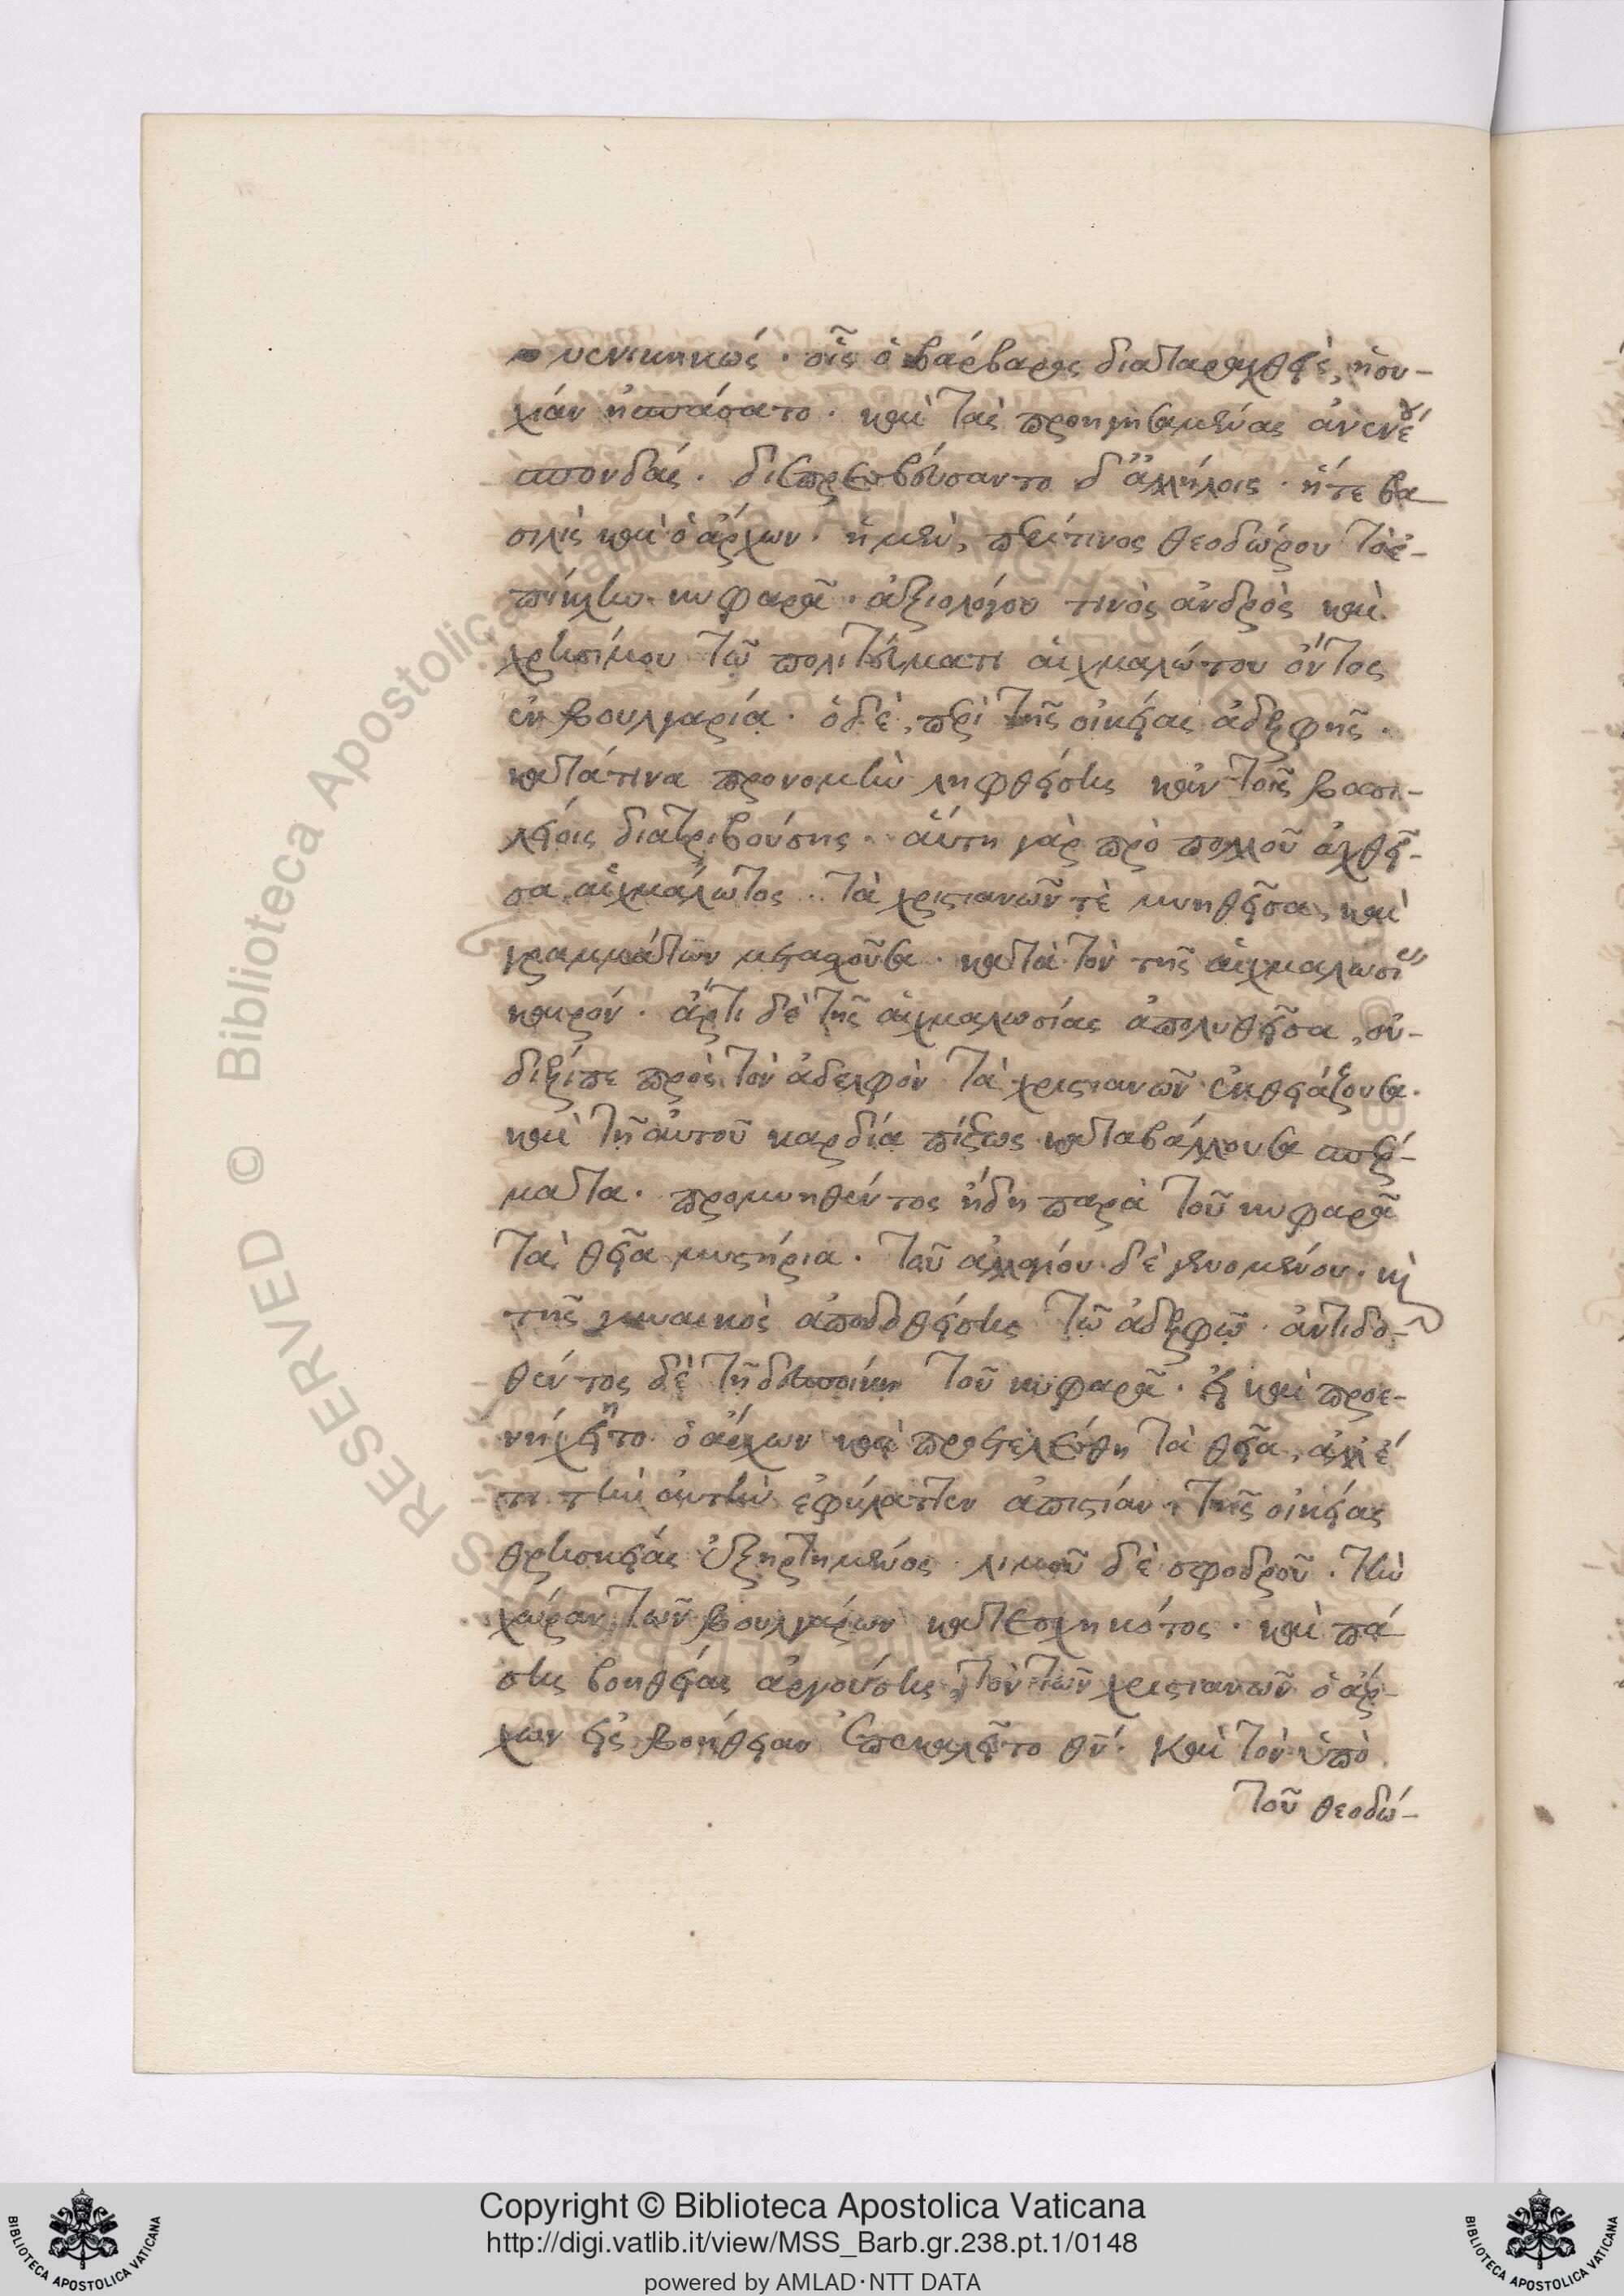 νενικηκώς · οἷς ὁ βάρβαρος διαταραχθεὶς, ἡσυ-
χίαν ἠσπάσατο · καὶ τὰς προηγησαμένας ἀνενέου
σπονδάς · διεπρεσβεύσαντο δ' ἀλλήλοις · ἥτε βα
σιλὶς καὶ ὁ ἄρχων · ἡ μὲν, περίτινος θεοδώρου τὸ ἐ-
πίκλην κυφαρᾶ · ἀξιολόγου τινὸς ἀνδρὸς καὶ
χρησίμου τῷ πολιτεύματι αἰχμαλώτου ὄντος
ἐν βουλγαρίᾳ · ὁ δὲ, περὶ τῆς οἰκείας ἀδελφῆς ·
κατάτινα προνομὴν ληφθείσης κἀν τοῖς βασι-
λείοις διατριβούσης · αὕτη γὰρ πρὸ πολλοῦ ἀχθεῖ-
σα αἰχμάλωτος · τὰ χριστιανῶν τὲ μυηθεῖσα, καὶ
γραμμάτων μετασχοῦσα · κατὰ τὸν τῆς αἰχμαλωσίας
καιρόν · ἄρτι δὲ τῆς αἰχμαλωσίας ἀπολυθεῖσα, οὐ-
διέλιπε πρὸς τὸν ἀδελφὸν τὰ χριστιανῶν ἐκθειάζουσα ·
καὶ τῇ αὐτοῦ καρδίᾳ πίστεως καταβάλλουσα σπέρ-
ματα · προμυηθέντος ἤδη παρὰ τοῦ κυφαρᾶ
τὰ θεῖα μυστήρια · τοῦ ἀλλαγίου δὲ γενομένου · καὶ
τῆς γυναικὸς ἀποδοθείσης τῷ ἀδελφῷ · ἀντιδο-
θέντος δὲ τῇ δεσποίνῃ τοῦ κυφαρᾶ · εἰ καὶ προε-
νήχθη το ὁ ἄρχων καὶ προετελέσθη τὰ θεῖα, ἀλλ' ἔ
τι τὴν αὐτὴν ἐφύλαττεν ἀπιστίαν, τῆς οἰκείας
θρησκείας ἐξηρτημένος · λιμοῦ δὲ σφοδροῦ · τὴν
χώραν τῶν βουλγάρων κατεσχηκότος · καὶ πά
σης βοηθείας ἀργούσης, τὸν τῶν χριστιανῶν ὁ ἄρ-
χων εἰς βοήθειαν ἐπεκαλεῖτο θν · καὶ τὸν ὑπὸ
τοῦ θεοδώ-
Copyright © Biblioteca Apostolica Vaticana
http://digi.vatlib.it/view/MSS_Barb.gr.238.pt.1/0148
powered by AMLAD·NTT DATA